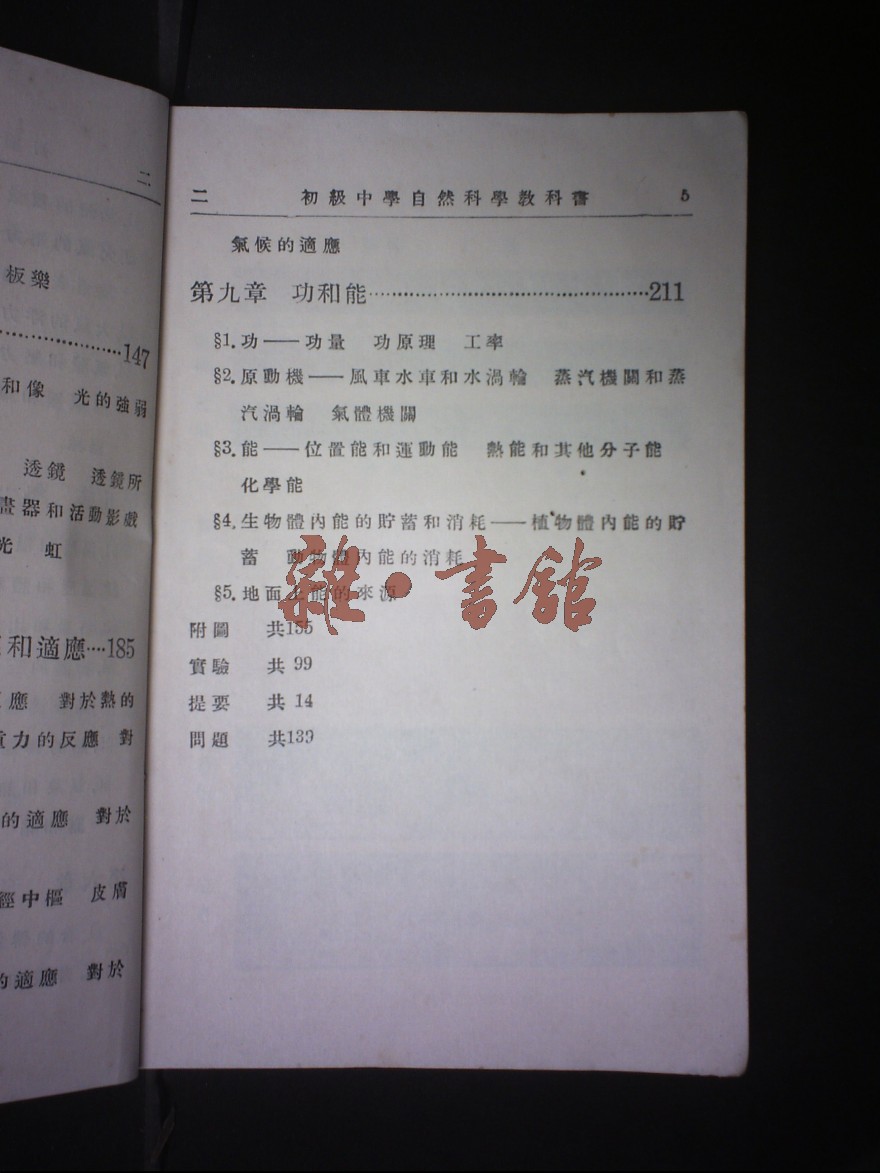 二
板樂
147
和像 光的強弱
透鏡 透鏡所
畫器和活動影戲
光 虹
和適應…185
應 對於熱的
重力的反應 對
的適應 對於
經中樞 皮膚
的適應 對於
二 初級中學自然科學教科書 5
氣候的適應
第九章 功和能………………………………211
§1.功——功量 功原理 工率
§2.原動機——風車水車和水渦輪 蒸汽機關和蒸
汽渦輪 氣體機關
§3.能——位置能和運動能 熱能和其他分子能
化學能
§4.生物體內能的貯蓄和消耗——植物體內能的貯
蓄 動物體內能的消耗
§5.地面上能的來源
附圖 共155
實驗 共 99
提要 共 14
問題 共139
雜·書館